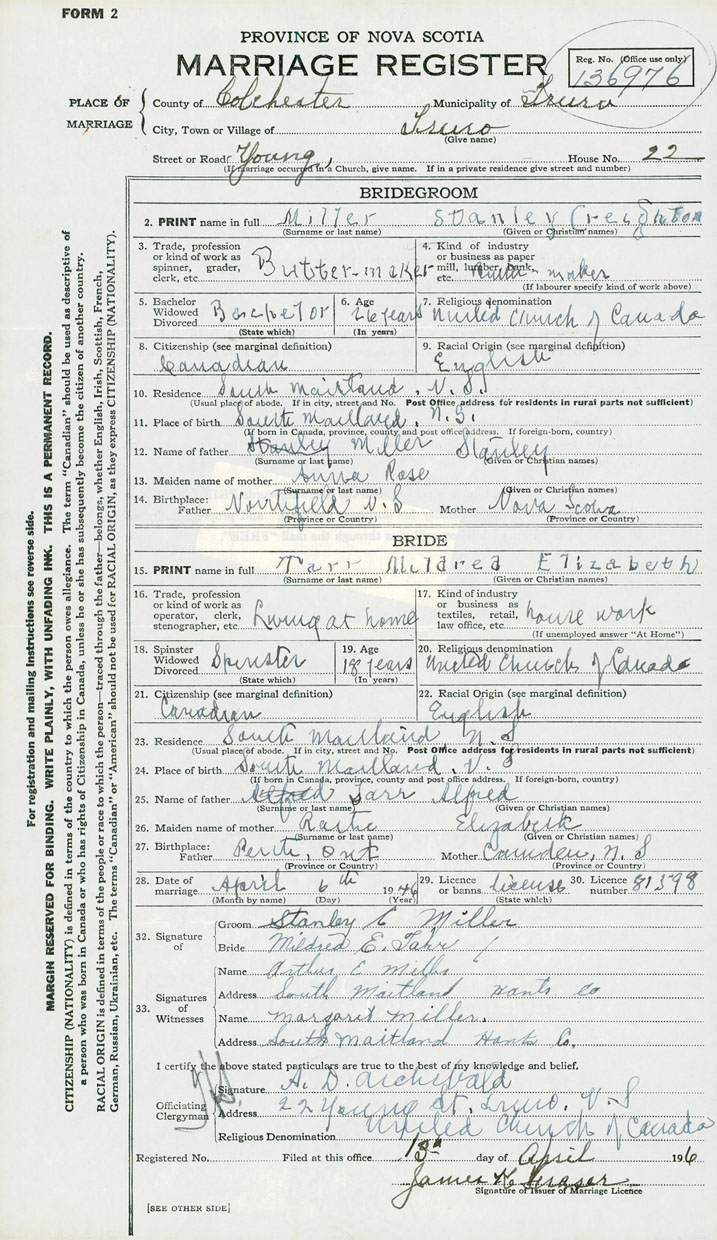 FORM 2
PROVINCE OF NOVA SCOTIA
MARRIAGE REGISTER
Reg. No. (Office use only)
136976
PLACE OF MARRIAGE
County of Colchester Municipality of Truro
City, Town or Village of Truro
(Give name)
Street or Road Young, House No. 22
(If marriage occurred in a Church, give name. If in a private residence give street and number)
BRIDEGROOM
2. PRINT name in full Miller Stanley Creighton
(Surname or last name) (Given or Christian names)
3. Trade, profession or kind of work as spinner, grader, clerk, etc. Butter-maker
4. Kind of industry or business as paper mill, lumber, bank, etc. Butter-maker
(If labourer specify kind of work above)
5. Bachelor Widowed Divorced Bachelor
(State which)
6. Age 26 years
(In years)
7. Religious denomination United Church of Canada
8. Citizenship (see marginal definition) Canadian
9. Racial Origin (see marginal definition) English
10. Residence South Maitland, N.S
(Usual place of abode. If in city, street and No. Post Office address for residents in rural parts not sufficient)
11. Place of birth South Maitland, N.S.
(If born in Canada, province, county and post office address. If foreign-born, country)
12. Name of father Stanley Miller Stanley
(Surname or last name) (Given or Christian names)
13. Maiden name of mother Anna Rose
(Surname or last name) (Given or Christian names)
14. Birthplace: Father Northfield N.S Mother Nova Scotia
(Province or Country) (Province or Country)
BRIDE
15. PRINT name in full Tarr Mildred Elizabeth
(Surname or last name) (Given or Christian names)
16. Trade, profession or kind of work as operator, clerk, stenographer, etc Living at home
17. Kind of industry or business as textiles, retail, law office, etc. house work
(If unemployed answer "At Home")
18. Spinster Widowed Divorced Spinster
(State which)
19. Age 18 years
(In years)
20. Religious denomination United Church of Canada
21. Citizenship (see marginal definition) Canadian
22. Racial Origin (see marginal definition) English
23. Residence South Maitland N.S
(Usual place of abode. If in city, street and No. Post Office address for residents in rural parts not sufficient)
24. Place of birth South Maitland, N.S
(If born in Canada, province, county and post office address. If foreign-born, country)
25. Name of father Alfred Tarr Alfred
(Surname or last name) (Given or Christian names)
26. Maiden name of mother Elizabeth
(Surname or last name) (Given or Christian names)
27. Birthplace: Father Perth, Ont Mother Camden, N.S
(Province or Country) (Province or Country)
28. Date of marriage April 6th 1946
(Month by name) (Day) (Year)
29. Licence or banns license
(State which)
30. Licence number 81598
32. Signature of
Groom Stanley C Miller
Bride Mildred E. Tarr
33. Signatures of Witnesses
Name Arthur C Mills
Address South Maitland Hants Co
Name Margaret Miller.
Address South Maitland Hants Co.
I certify the above stated particulars are true to the best of my knowledge and belief.
Officiating Clergyman
Signature A. D. Archibald
Address 22 Young St. Truro, N.S
Religious Denomination United Church of Canada
Registered No. Filed at this office 13th day of April 1946
James K Fraser
Signature of Issuer of Marriage Licence
[SEE OTHER SIDE]
For registration and mailing instructions see reverse side.
MARGIN RESERVED FOR BINDING. WRITE PLAINLY, WITH UNFADING INK. THIS IS A PERMANENT RECORD.
CITIZENSHIP (NATIONALITY) is defined in terms of the country to which the person owes allegiance. The term "Canadian" should be used as descriptive of
a person who was born in Canada or who has rights of Citizenship in Canada, unless he or she has subsequently become the citizen of another country.
RACIAL ORIGIN is defined in terms of the people or race to which the person—traced through the father—belongs, whether English, Irish, Scottish, French,
German, Russian, Ukrainian, etc. The terms "Canadian" or "American" should not be used for RACIAL ORIGIN, as they express CITIZENSHIP (NATIONALITY).